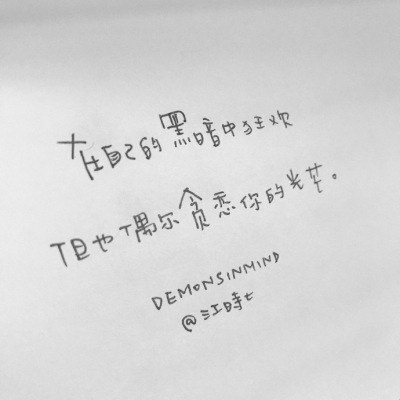 在自己的黑暗中狂欢
但也偶尔贪恋你的光芒。
DEMONSINMIND
@江時七